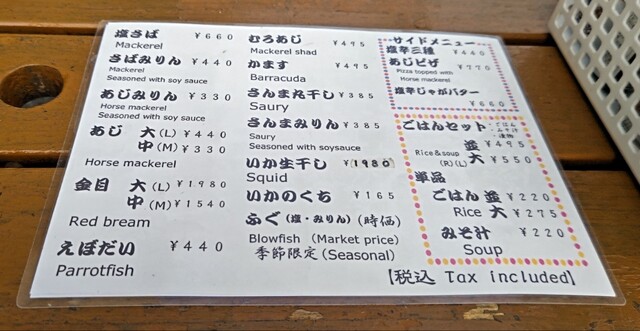 塩さば ¥660
Mackerel
さばみりん ¥440
Mackerel
Seasoned with soy sauce
あじみりん ¥330
Horse mackerel
Seasoned with soy sauce
あじ 大(L) ¥440
中(M) ¥330
Horse mackerel
金目 大(L) ¥1980
中(M) ¥1540
Red bream
えぼだい ¥440
Parrotfish
むろあじ ¥495
Mackerel shad
かます ¥495
Barracuda
さんま丸干し ¥385
Saury
さんまみりん ¥385
Saury
Seasoned with soysauce
いか生干し ¥1980
Squid
いかのくち ¥165
ふぐ(塩・みりん)(時価)
Blowfish (Market price)
季節限定(Seasonal)
サイドメニュー
塩辛三種 ¥440
あじピザ ¥770
Pizza topped with
Horse mackerel
塩辛じゃがバター
¥660
ごはんセット ・ごはん
・みそ汁
・漬物
並 ¥495
Rice&soup
(R)(L) 大 ¥550
単品
ごはん 並 ¥220
Rice 大 ¥275
みそ汁 ¥220
Soup
【税込 Tax included】